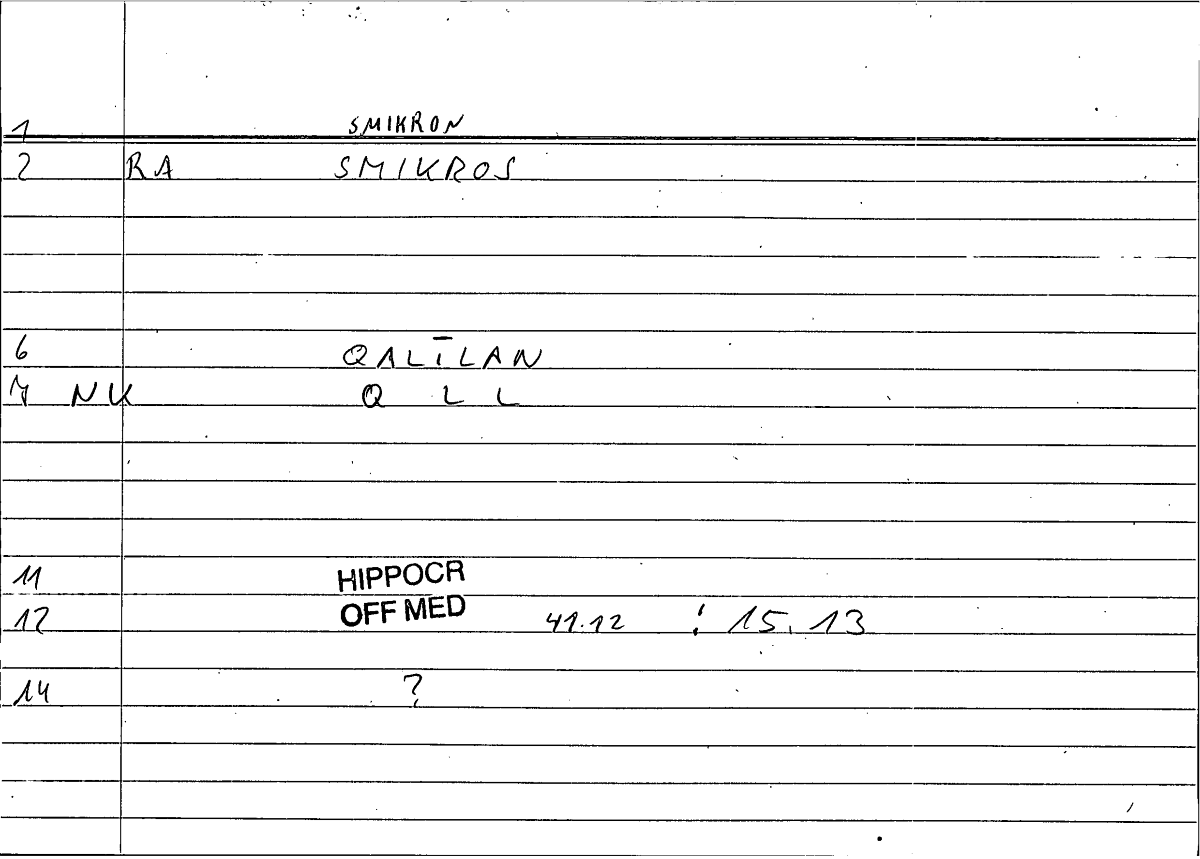 1 SMIKRON
2 RA SMIKROS
6 QALĪLAN
7 NK Q L L
11 HIPPOCR
12 OFF MED 41.12 : 15.13
14 ?